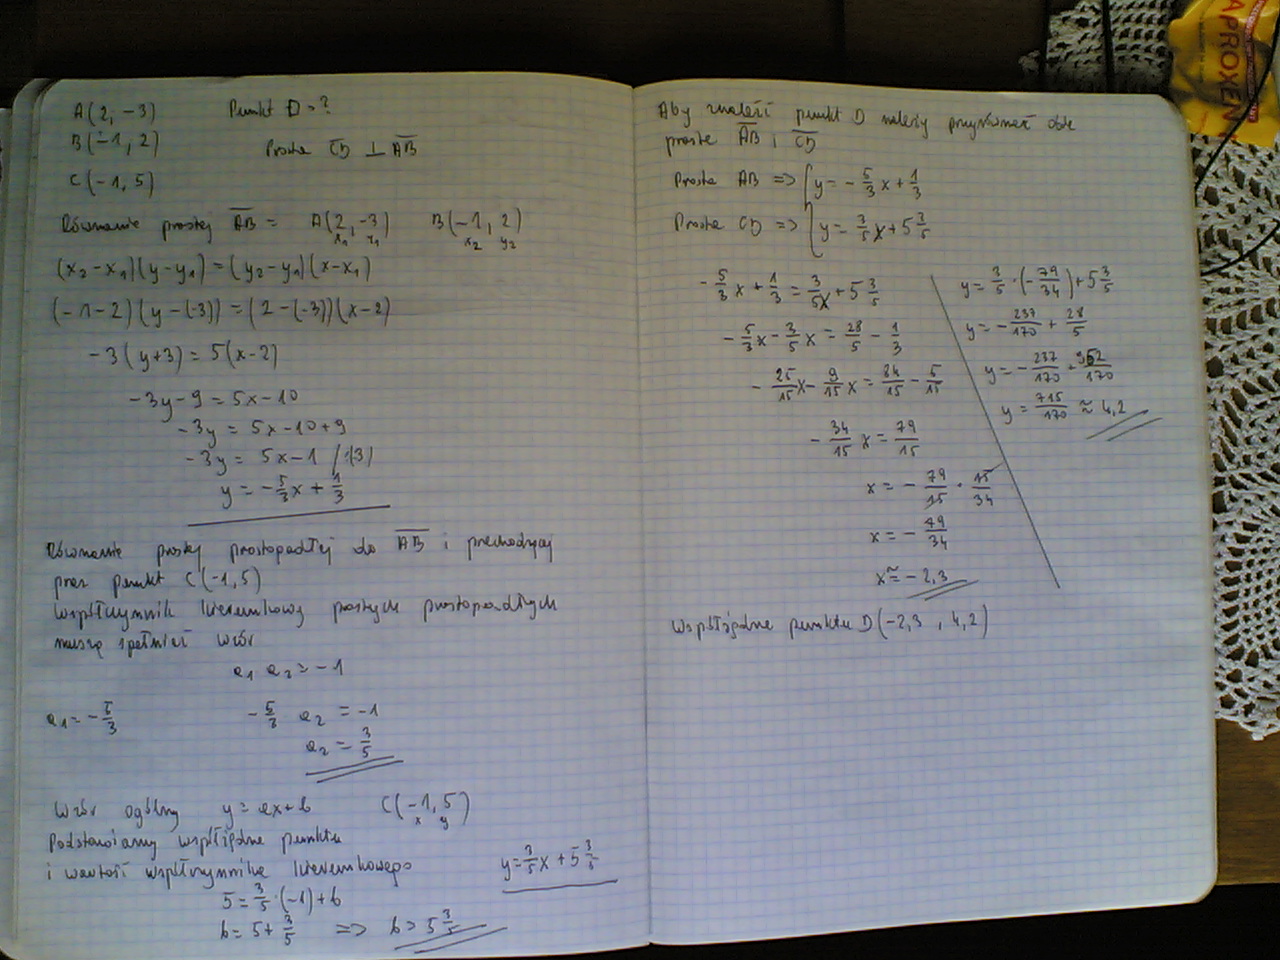 A(2, -3) Punkt D = ?
B(-1, 2) Prosta CD ⊥ AB
C(-1, 5)
Równanie prostej AB = A(2, -3) B(-1, 2)
x₁ y₁ x₂ y₂
(x₂-x₁)(y-y₁) = (y₂-y₁)(x-x₁)
(-1-2)(y-(-3)) = (2-(-3))(x-2)
-3(y+3) = 5(x-2)
-3y-9 = 5x-10
-3y = 5x-10+9
-3y = 5x-1 /:(-3)
y = -5/3x + 1/3
Równanie prostej prostopadłej do AB i przechodzącej
przez punkt C(-1,5)
Współczynnik kierunkowy prostych prostopadłych
muszą spełniać wzór
a₁ a₂ = -1
a₁ = -5/3 -5/3 a₂ = -1
a₂ = 3/5
Wzór ogólny y = ax+b C(-1,5)
x y
Podstawiamy współrzędne punktu
i wartość współczynnika kierunkowego
y = 3/5x + 5 3/5
5 = 3/5·(-1)+b
b = 5+3/5 => b = 5 3/5
Aby znaleźć punkt D należy przyrównać obie
proste AB i CD
Prosta AB => { y = -5/3x + 1/3
Prosta CD => { y = 3/5x + 5 3/5
-5/3x + 1/3 = 3/5x + 5 3/5
-5/3x - 3/5x = 28/5 - 1/3
-25/15x - 9/15x = 84/15 - 5/15
-34/15 x = 79/15
x = -79/15 · 15/34
x = -79/34
x ≈ -2,3
y = 3/5·(-79/34)+5 3/5
y = -237/170 + 28/5
y = -237/170 + 952/170
y = 715/170 ≈ 4,2
Współrzędne punktu D(-2,3 , 4,2)
APROXEN